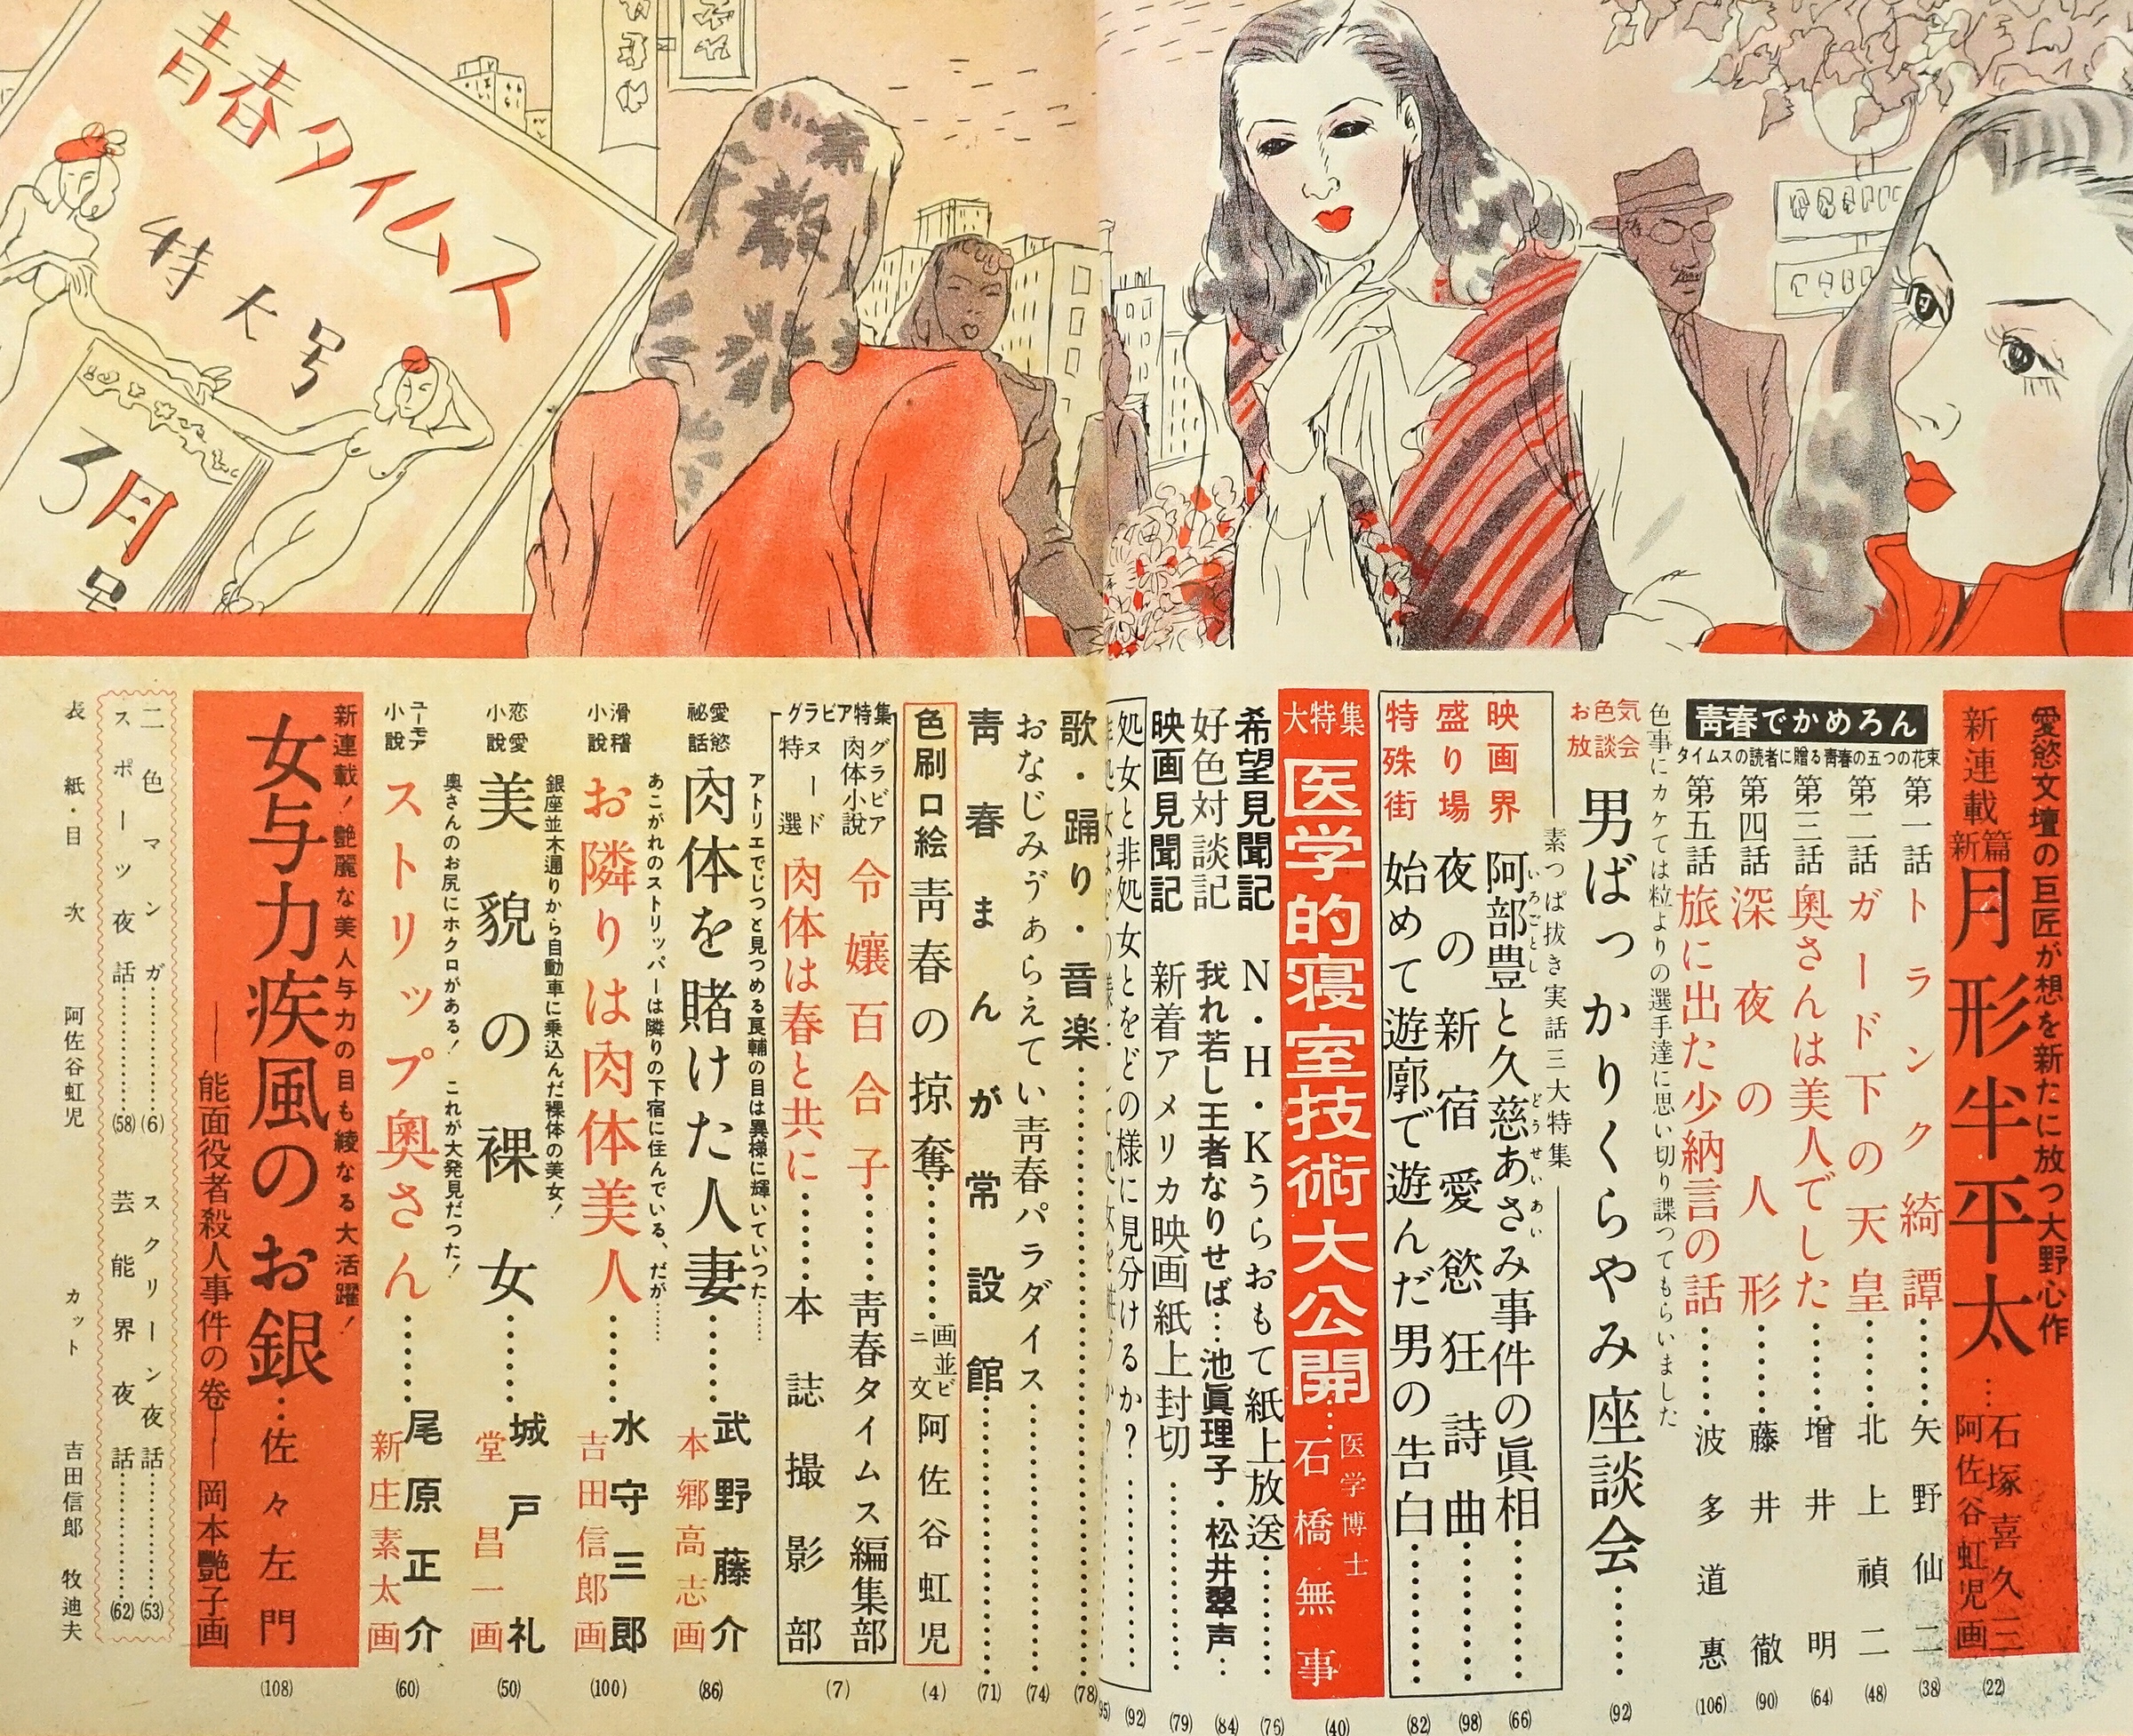 青春タイムス
特大号
3月号
愛慾文壇の巨匠が想を新たに放つ大野心作
新連載
新篇
月形半平太…
石塚喜久三
阿佐谷虹児画
(22)
青春でかめろん
タイムスの読者に贈る青春の五つの花束
第一話 トランク綺譚……矢野仙二 (38)
第二話 ガード下の天皇……北上禎二 (48)
第三話 奥さんは美人でした……増井明 (64)
第四話 深夜の人形……藤井徹 (90)
第五話 旅に出た少納言の話……波多道惠 (106)
色事にカケては粒よりの選手達に思い切り諜つてもらいました
お色気放談会
男ばっかりくらやみ座談会……(92)
素っぱ抜き実話三大特集
映画界 阿部豊と久慈あさみ事件の眞相……(66)
いろごとし
どうせいあい
盛り場 夜の新宿愛慾狂詩曲……(98)
特殊街 始めて遊廓で遊んだ男の告白……(82)
大特集
医学的寝室技術大公開…
医学博士
石橋無事
(40)
希望見聞記 N・H・Kうらおもて紙上放送……(76)
好色対談記 我れ若し王者なりせば…池眞理子・松井翠声…(84)
映画見聞記 新着アメリカ映画紙上封切……(79)
処女と非処女とをどの様に見分けるか?……(92)
歌・踊り・音楽……(78)
おなじみゔぁらえてい青春パラダイス……(74)
青春まんが常設館……(71)
色刷口絵 青春の掠奪……画並ビニ文 阿佐谷虹児 (4)
グラビア特集
グラビア肉体小説 令嬢百合子……青春タイムス編集部
ヌード特選 肉体は春と共に……本誌撮影部
(7)
アトリエでじっと見つめる良輔の目は異様に輝いていつた……
愛慾秘話 肉体を賭けた人妻……武野藤介
本郷高志画
(86)
あこがれのストリッパーは隣りの下宿に住んでいる、だが……
滑稽小説 お隣りは肉体美人……水守三郎
吉田信郎画
(100)
銀座並木通りから自動車に乗込んだ裸体の美女!
恋愛小説 美貌の裸女……城戸礼
堂昌一画
(50)
奥さんのお尻にホクロがある! これが大発見だった!
ユーモア小説 ストリップ奥さん……尾原正介
新庄素太画
(60)
新連載! 艶麗な美人与力の目も綾なる大活躍!
女与力疾風のお銀…佐々左門
──能面役者殺人事件の巻──岡本艶子画
(108)
二色マンガ……(6) スクリーン夜話……(53)
スポーツ夜話……(58) 芸能界夜話……(62)
表紙・目次 阿佐谷虹児 カット 吉田信郎 牧迪夫